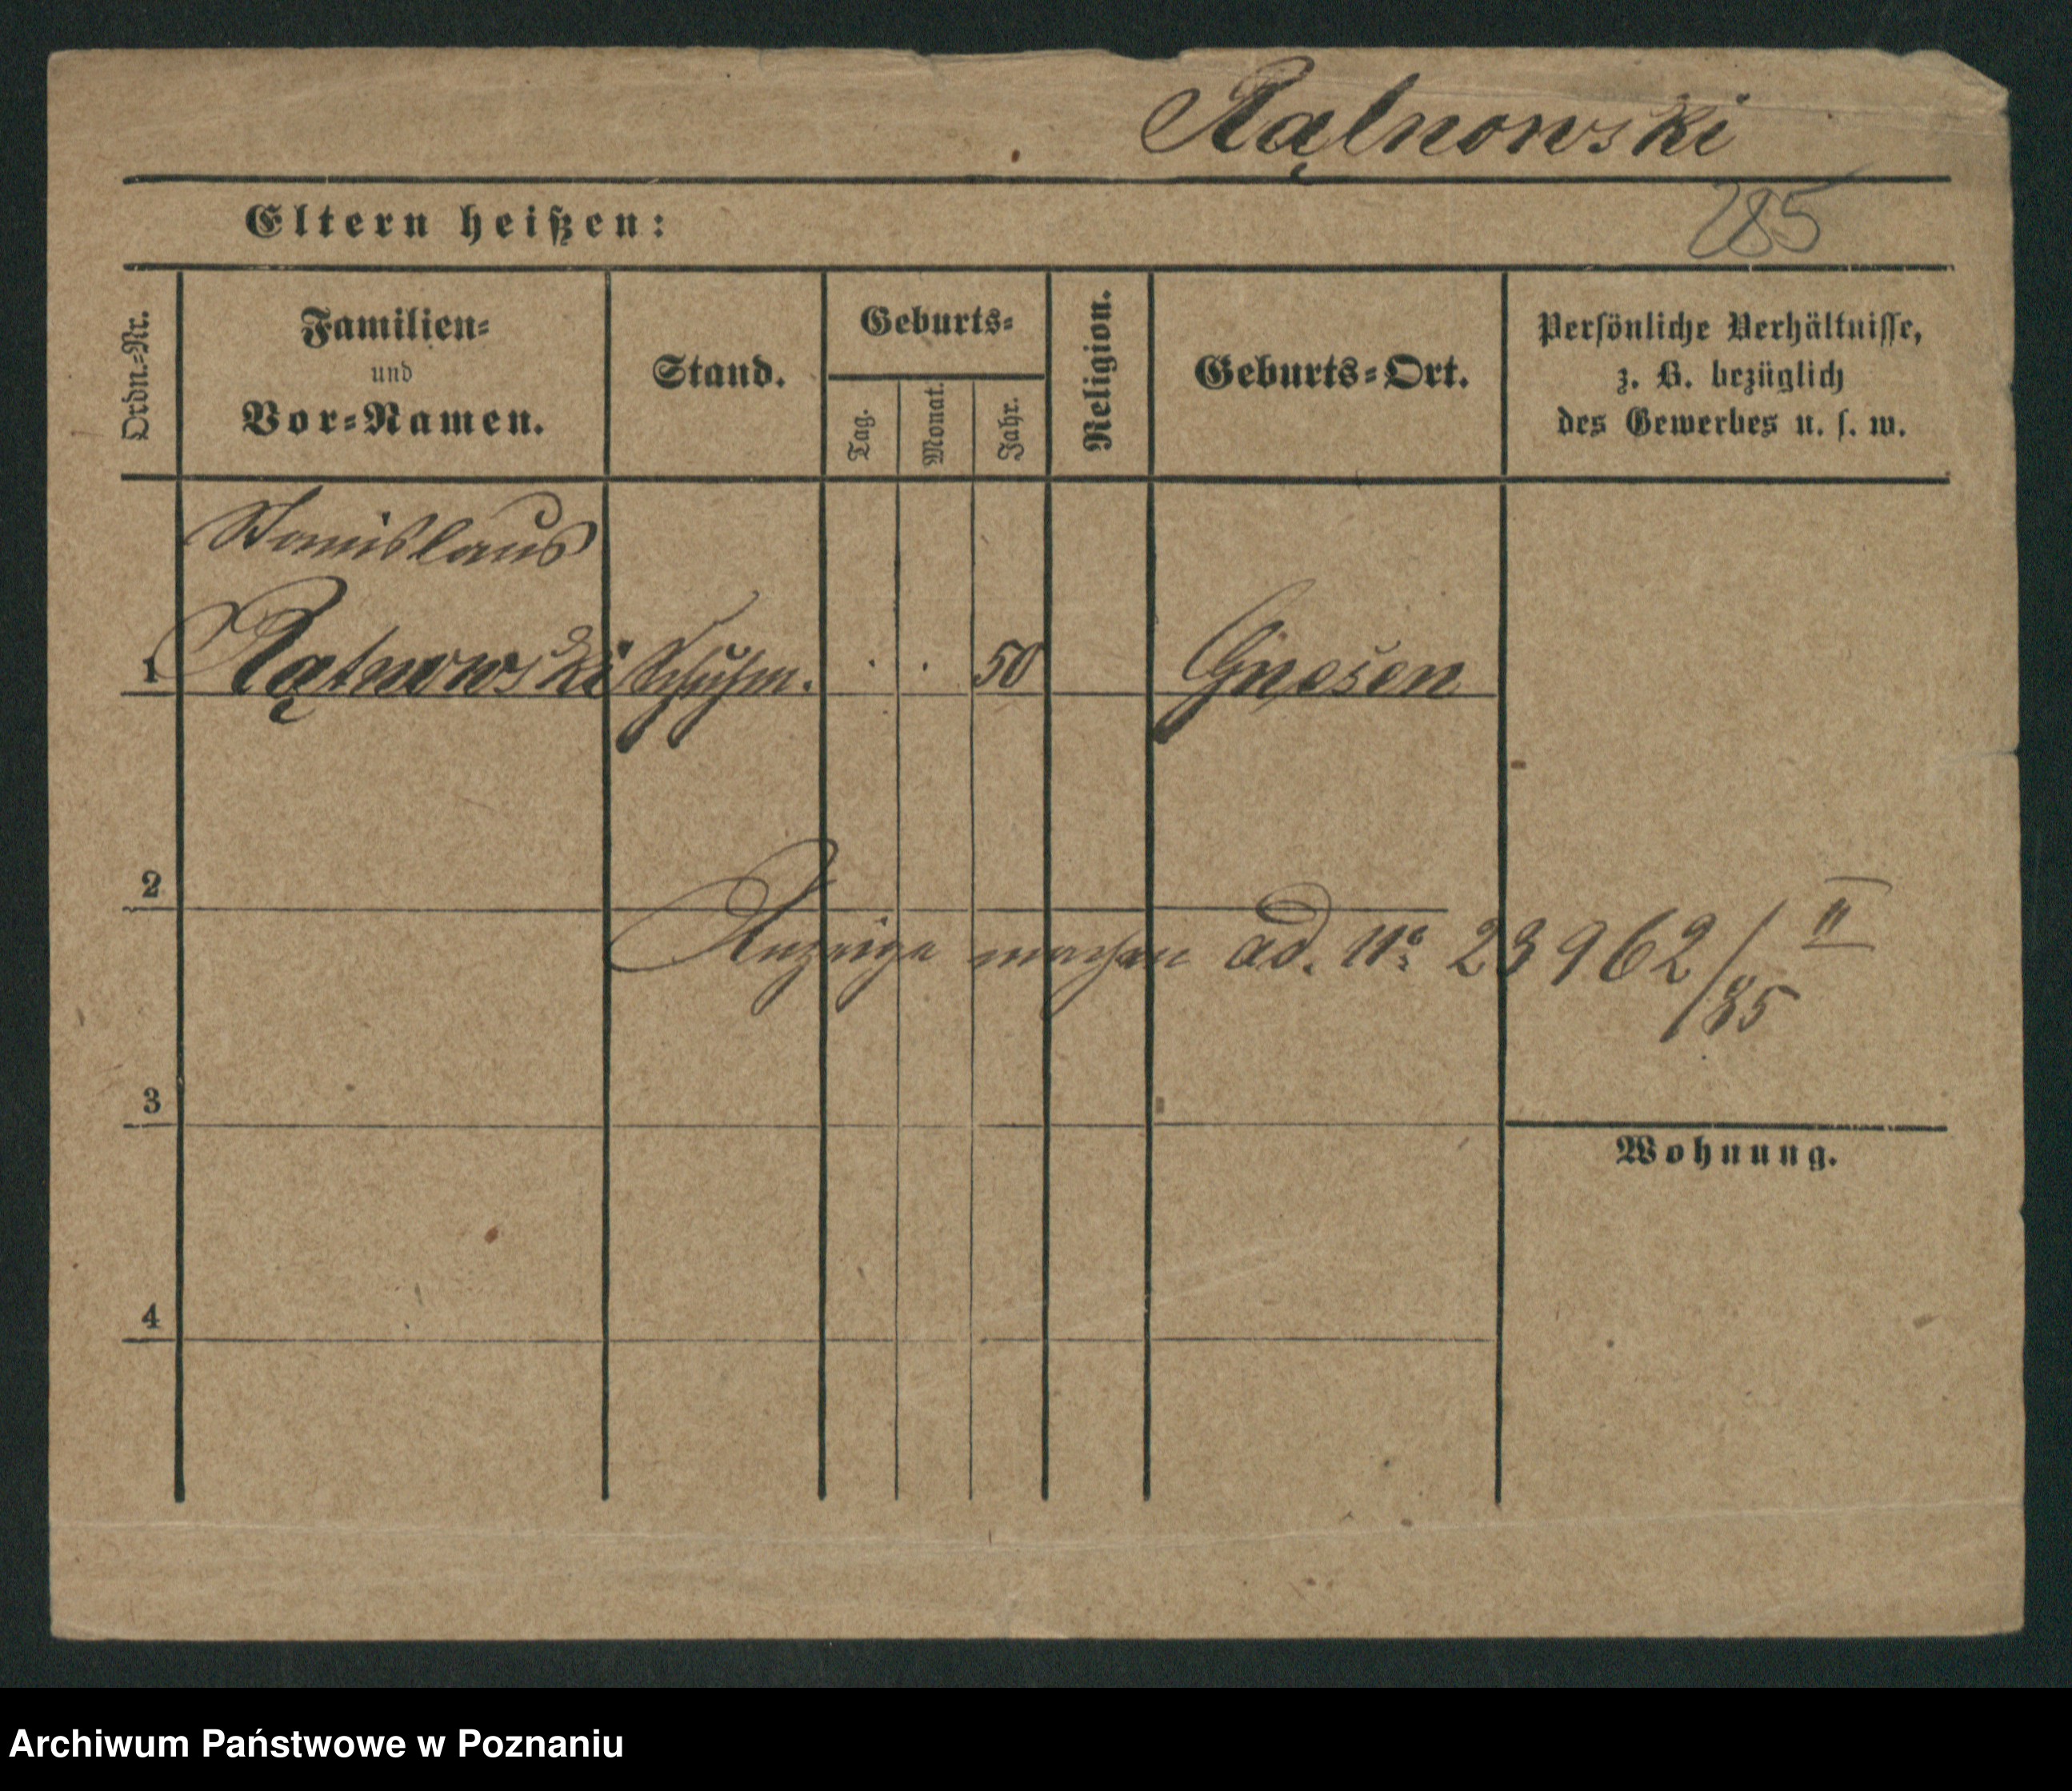 Rątnowski
285
Eltern heißen:
Ordn.-Nr.
Familien-
und
Vor-Namen.
Stand.
Geburts-
Tag.
Monat.
Jahr.
Religion.
Geburts-Ort.
Persönliche Verhältnisse,
z. B. bezüglich
des Gewerbes u. s. w.
Stanislaus
1 Rątnowski Schuhm. . . 50 Gnesen
2
Anzeige machen ad. No 23962/85 II
3
Wohnung.
4
Archiwum Państwowe w Poznaniu